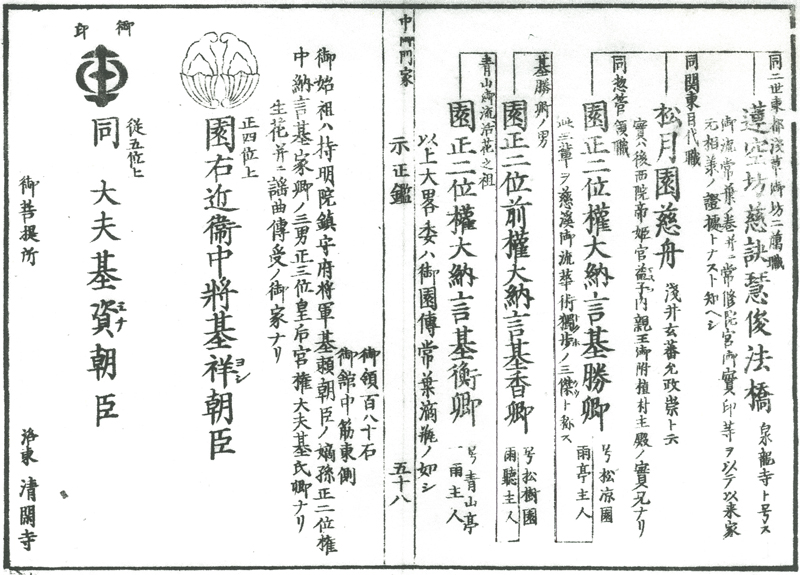 同二世東都浅草御坊二萬職
遵空坊慈訣慧俊法橋
泉龍寺ト号ス
御流常葉巻并ニ常修院宮御寶印等ヲ以テ以来家
元相承ノ證據トナスト知ヘシ
同関東目代職
松月園慈舟
浅井玄蕃允政崇ト云
實ハ後西院帝姫宮益子内親王御附植村主殿ノ實兄ナリ
同惣菅領職
園正二位權大納言基勝卿
号松凉園
雨亭主人
此三輩ヲ慈溪御流華術獨歩ノ三傑ト称ス
基勝卿ノ男
園正二位前權大納言基香卿
号松樹園
雨聽主人
青山御流活花之祖
園正二位權大納言基衡卿
号青山亭
雨主人
以上大畧委ハ御園傳常葉滴瓶ノ如シ
中御門家
示正鑑
五十八
御領百八十石
御館中筋東側
御始祖ハ持明院鎮守府将軍基頼朝臣ノ嫡孫正二位權
中納言基家卿ノ三男正三位皇后宮權大夫基氏卿ナリ
生花并ニ謡曲傳受ノ御家ナリ
正四位上
園右近衞中將基祥朝臣
ヨシ
御印
從五位上
同大夫基資朝臣
ミナ
御菩提所
洛東清閑寺